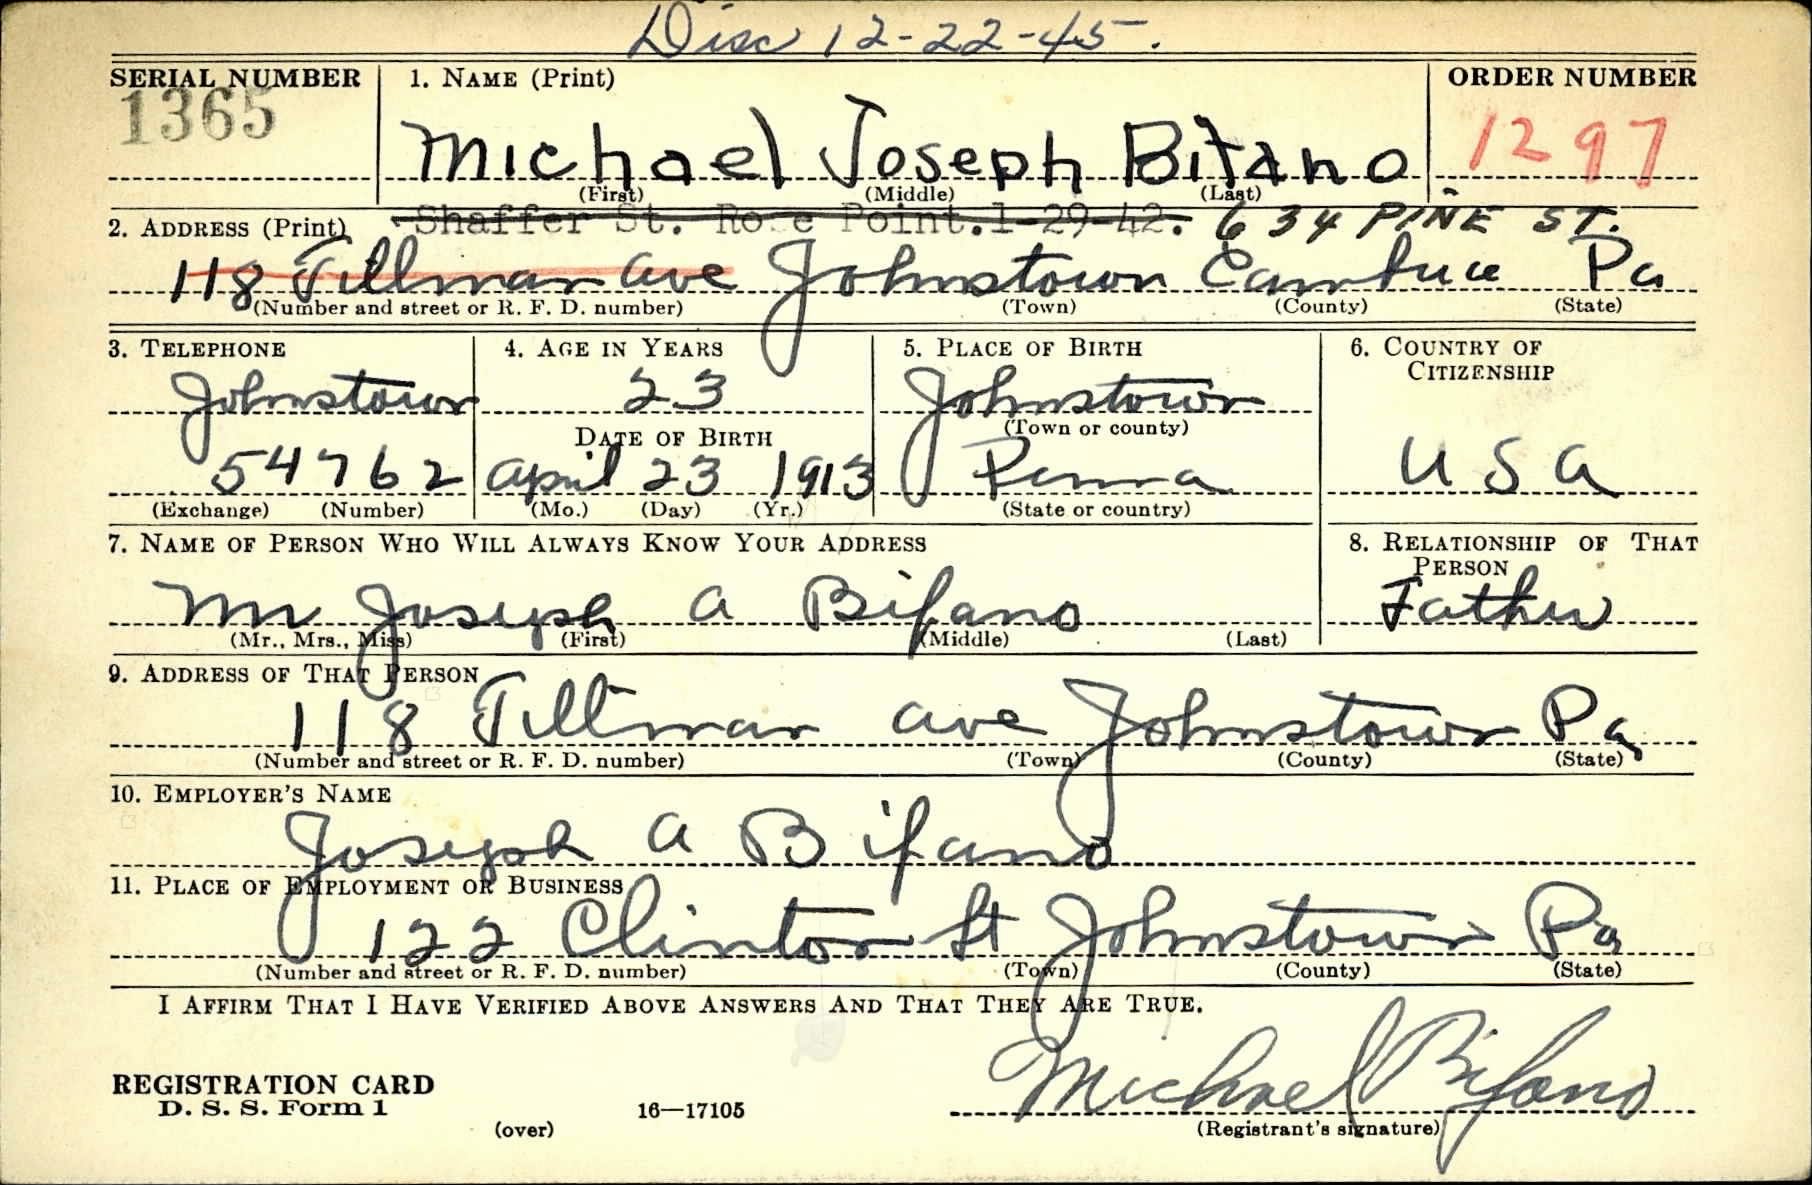 Disc 12-22-45.
SERIAL NUMBER 1. NAME (Print) ORDER NUMBER
1365 Michael Joseph Bifano 1297
(First) (Middle) (Last)
2. ADDRESS (Print) Shaffer St. Rose Point. 1-29-42. 634 PINE ST.
118 Tillman ave Johnstown Cambria Pa
(Number and street or R. F. D. number) (Town) (County) (State)
3. TELEPHONE 4. AGE IN YEARS 5. PLACE OF BIRTH 6. COUNTRY OF CITIZENSHIP
Johnstown 23 Johnstown
DATE OF BIRTH (Town or county)
54762 April 23 1913 Penna USA
(Exchange) (Number) (Mo.) (Day) (Yr.) (State or country)
7. NAME OF PERSON WHO WILL ALWAYS KNOW YOUR ADDRESS 8. RELATIONSHIP OF THAT PERSON
Mr Joseph A Bifano Father
(Mr., Mrs., Miss) (First) (Middle) (Last)
9. ADDRESS OF THAT PERSON
118 Tillman ave Johnstown Pa
(Number and street or R. F. D. number) (Town) (County) (State)
10. EMPLOYER'S NAME
Joseph A Bifano
11. PLACE OF EMPLOYMENT OR BUSINESS
122 Clinton St Johnstown Pa
(Number and street or R. F. D. number) (Town) (County) (State)
I AFFIRM THAT I HAVE VERIFIED ABOVE ANSWERS AND THAT THEY ARE TRUE.
Michael Bifano
REGISTRATION CARD
D. S. S. Form 1 16—17105
(over) (Registrant's signature)